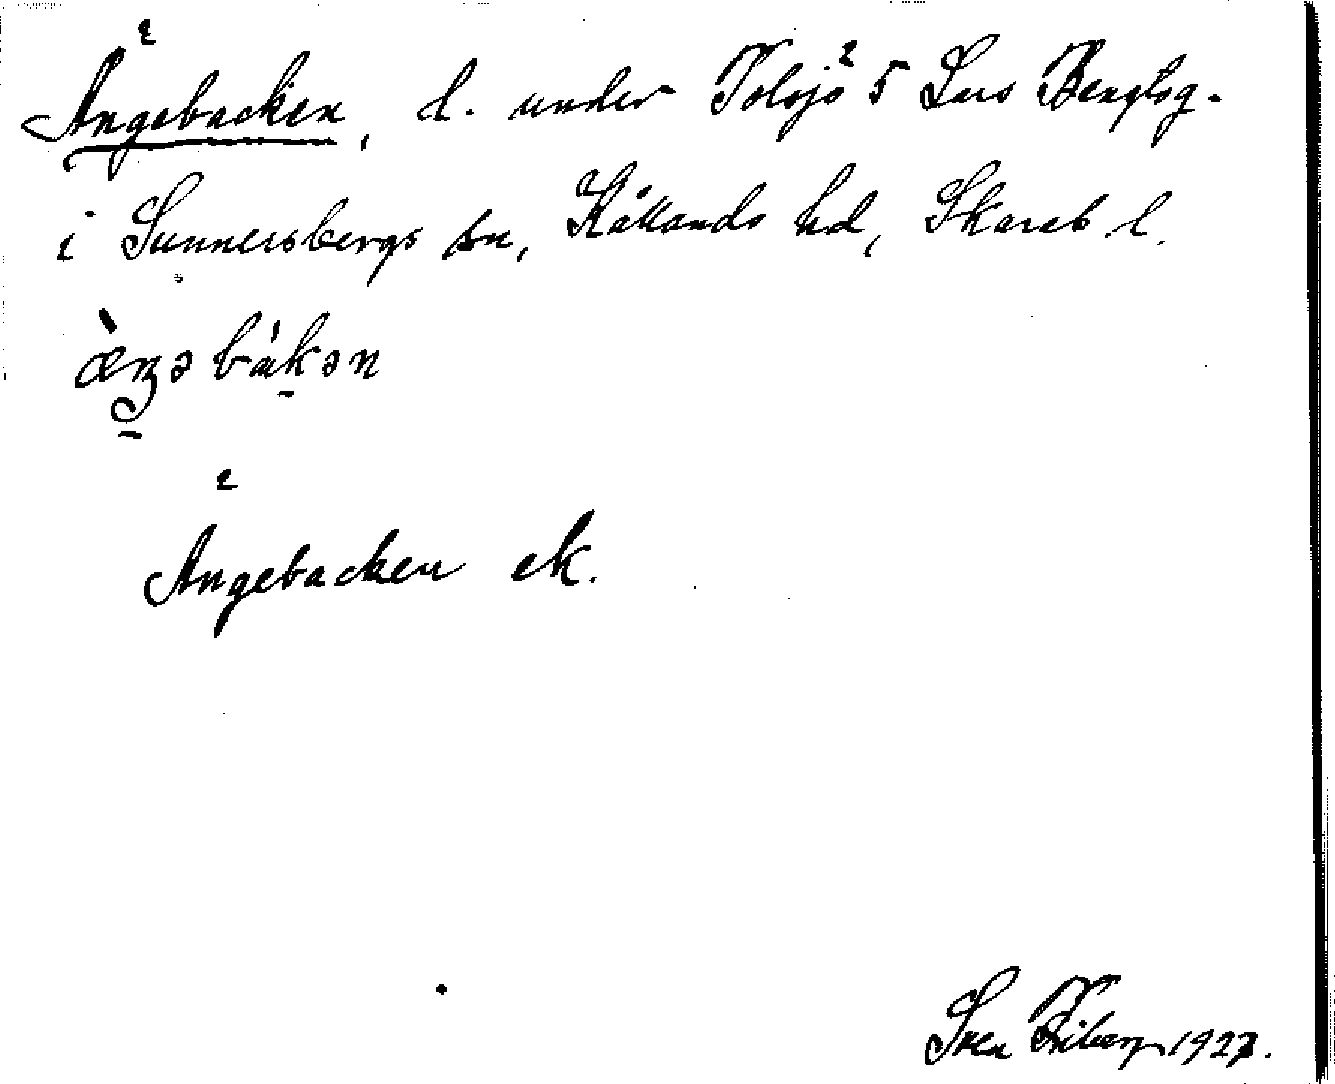 Ängebacken, l. under Tolsjö 5 Lars Bengtsg.
i Sunnersbergs sn, Kållands hd, Skarab. l.
æ̀ŋəbákən
Ängebacken ek.
Sven Friberg 1927.